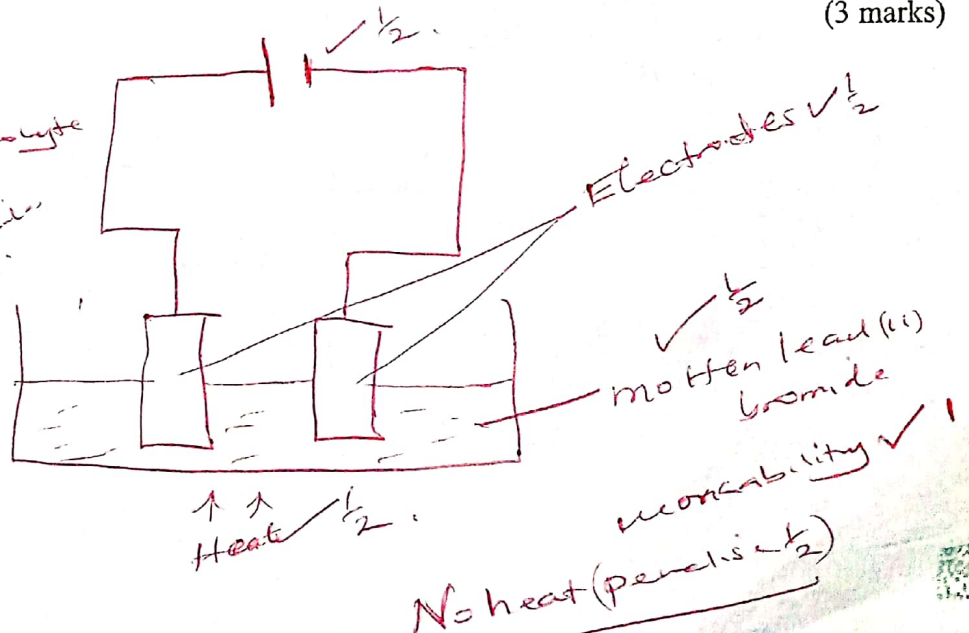 (3 marks)
✓ ½.
Electrodes ✓ ½
✓ ½
molten lead (ii)
bromide
workability ✓ 1
↑ ↑
Heat ✓ ½.
No heat (penalise ½)